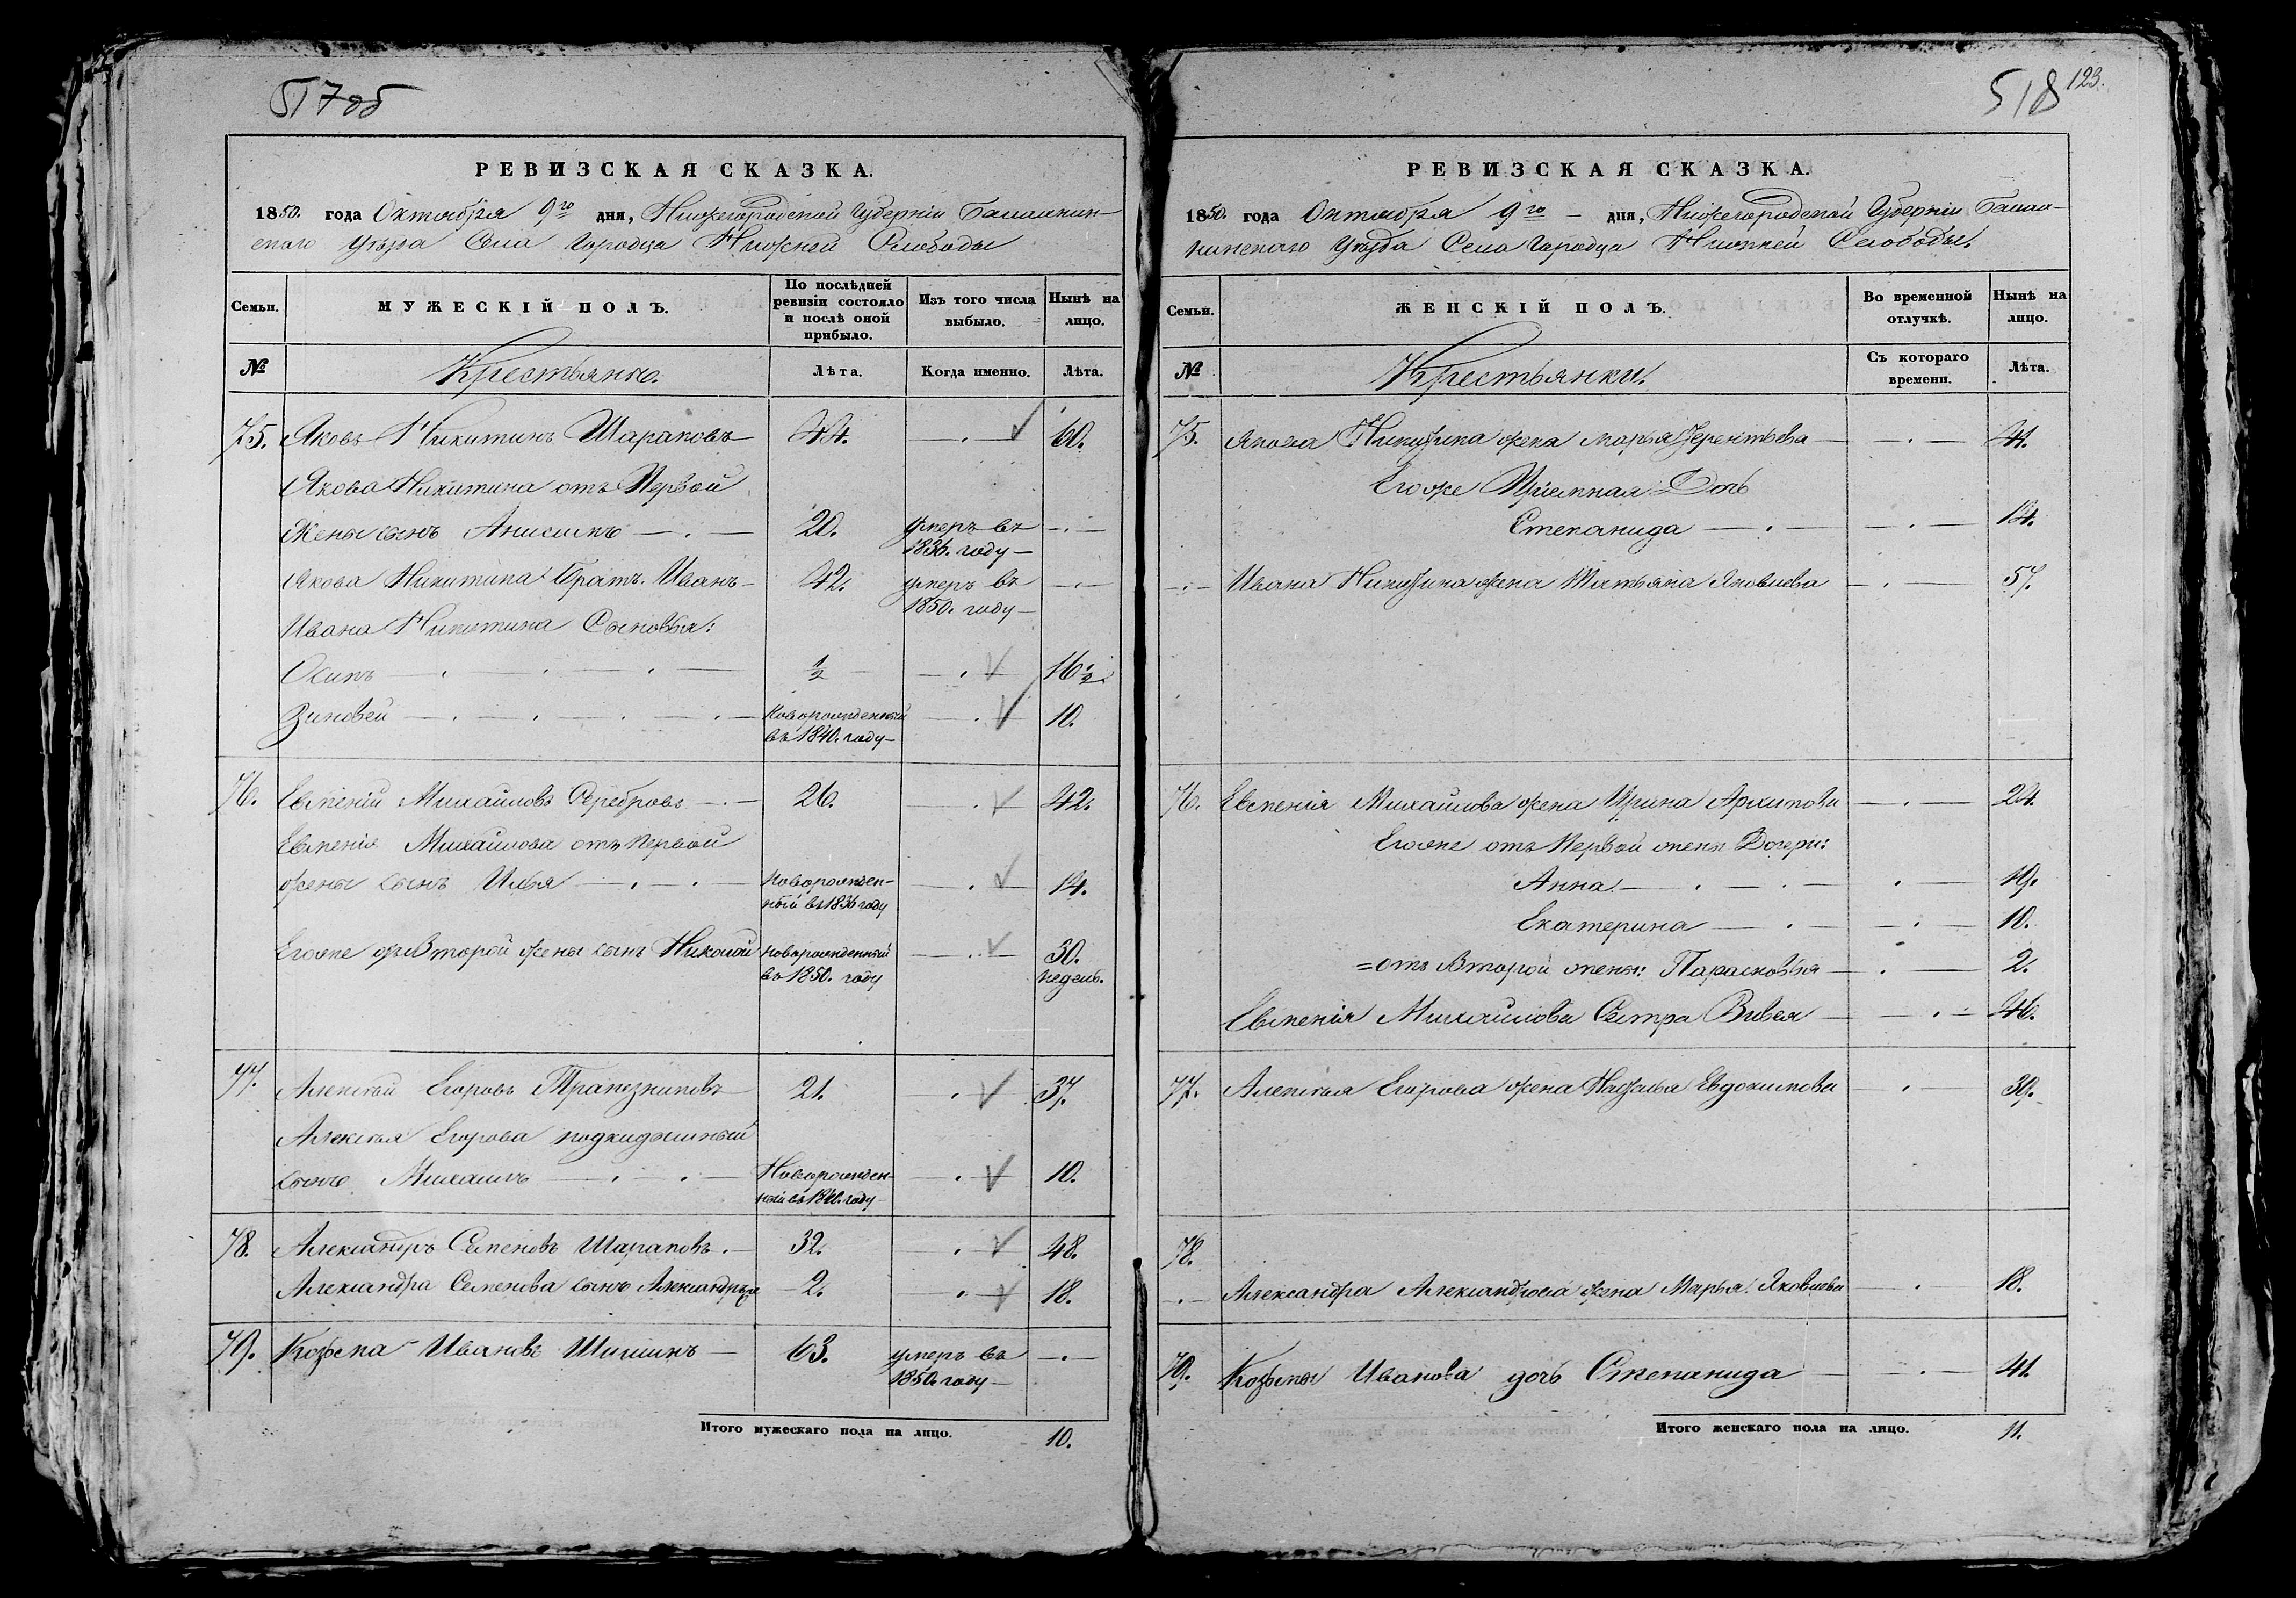 517об
РЕВИЗСКАЯ СКАЗКА.
1850. года Октября 9го дня, Нижегородской Губернiи Балахнин-
скаго Уѣзда Села Городца Нижней Слободы
Семьи.
МУЖЕСКІЙ ПОЛЪ.
По послѣдней ревизіи состояло и послѣ оной прибыло.
Изъ того числа выбыло.
Нынѣ на лицо.
№
Крестьяне.
Лѣта.
Когда именно.
Лѣта.
75. Яковъ Никитинъ Шараповъ 44. 60.
Якова Никитина отъ Первой
Жены сынъ Анисимъ 20. умеръ въ
1836. году
Якова Никитина Братъ Иванъ 42. умеръ въ
1850. году
Ивана Никитина Сыновья:
Осипъ 1/2 16 1/2
Зиновей Новорожденный 10.
въ 1840. году
76. Евгеній Михайловъ Серебровъ 26. 42.
Евгенія Михайлова отъ Первой
жены сынъ Илья Новорожден- 14.
ный въ 1836 году
Егоже отъ Второй жены сынъ Николай Новорожденный 30.
въ 1850. году недель.
77. Алексѣй Егоровъ Трапезниковъ 21. 37.
Алексѣя Егорова подкидышный
сынъ Михаилъ Новорожден- 10.
ный въ 1840. году
78. Александръ Семеновъ Шараповъ. 32. 48.
Александра Семенова сынъ Александръ 2. 18.
79. Козьма Ивановъ Шишинъ 63. умеръ въ
1850. году
Итого мужескаго пола на лицо. 10.
518
123.
РЕВИЗСКАЯ СКАЗКА.
1850. года Октября 9го дня, Нижегородской Губерніи Балах-
нинскаго Уѣзда Села Городца Нижней Слободы.
Семьи.
ЖЕНСКІЙ ПОЛЪ.
Во временной отлучкѣ.
Нынѣ на лицо.
№
Крестьянки.
Съ котораго времени.
Лѣта.
75. Якова Никитина жена Марья Терентьева 41.
Егоже Пріемная Дочь
Степанида 14.
Ивана Никитина жена Татьяна Яковлева 57.
76. Евгенія Михайлова жена Ирина Архипова 24.
Егоже отъ Первой жены Дочери:
Анна 19.
Екатерина 10.
=отъ Второй жены: Парасковья 2.
Евгенія Михайлова Сестра Вивея 46.
77. Алексѣя Егорова жена Евдокимова 39.
78.
Александра Александрова жена Марья Яковлева 18.
79. Козьмы Иванова дочь Степанида 41.
Итого женскаго пола на лицо. 11.